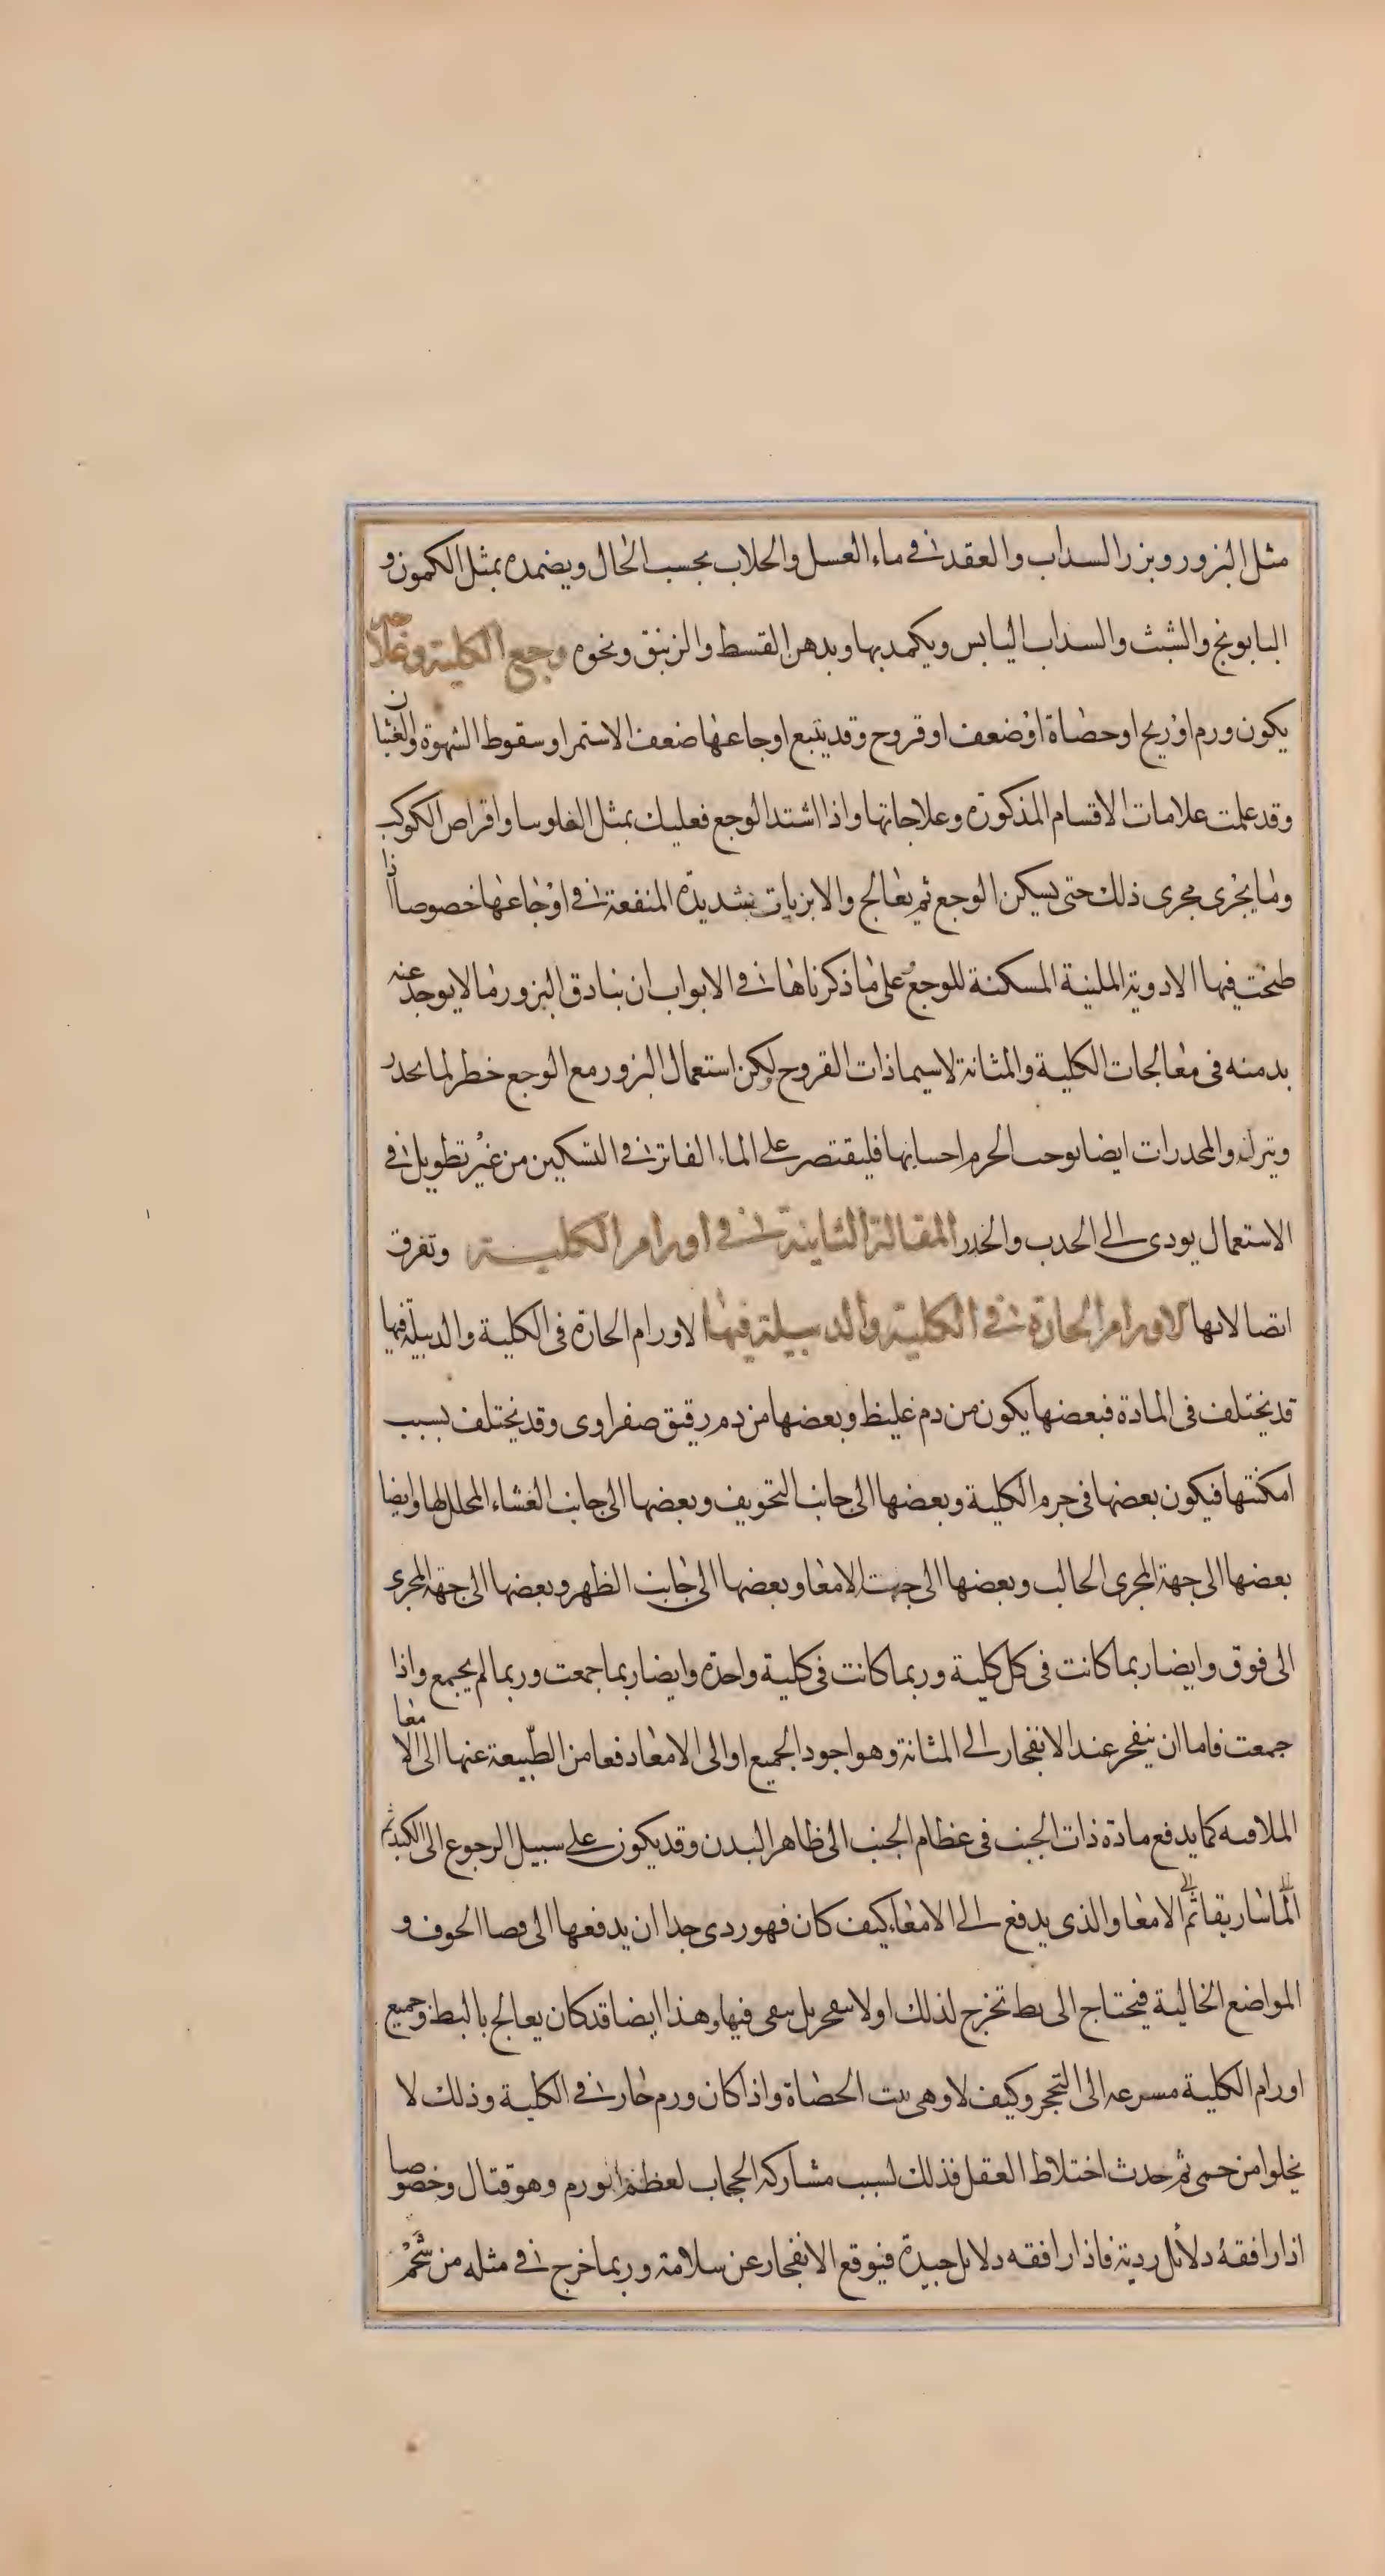 مثل البزور وبزر السداب والعقد فى ماء العسل والجلاب بحسب الحال ويضمده بمثل الكمون و
البابونج والشبث والسداب اليابس ويكمد بها وبدهن القسط والزنبق ونحوه وجع الكلية وعلاجه
يكون ورم او ريح او حصاة او ضعف او قروح وقد يتبع اوجاعها ضعف الاستمرا وسقوط الشهوة والغثيان
وقد علمت علامات الاقسام المذكورة وعلاجاتها واذا اشتد الوجع فعليك بمثل الفلونيا واقراص الكوكب
وما يجرى مجرى ذلك حتى يسكن الوجع ثم يعالج والابزيات شديدة المنفعة فى اوجاعها خصوصا اذا
طبخت فيها الادوية الملينة المسكنة للوجع على ما ذكرناها فى الابواب ان بنادق البزور مما لا يوجد عنه
بد منه فى معالجات الكلية والمثانة لاسيما ذات القروح لكن استعمال البزور مع الوجع خطر لما يحدر
وينزله والمخدرات ايضا توجب الحرم احسانها فليقتصر على الماء الفاتر فى التسكين من غير تطويل فى
الاستعمال يودى الى الجذب والخدر المقالة الثانية فى اورام الكلية وتفرق
اتصالاتها الاورام الحارة فى الكلية والدبيلة فيها الاورام الحارة فى الكلية والدبيلة فيها
قد يختلف فى المادة فبعضها يكون من دم غليظ وبعضها من دم رقيق صفراوى وقد يختلف بسبب
امكنتها فيكون بعضها فى جرم الكلية وبعضها الى جانب التجويف وبعضها الى جانب الغشاء المجلل لها وايضا
بعضها الى جهة المجرى الحالب وبعضها الى جهت الامعا وبعضها الى جانب الظهر وبعضها الى جهة المجرى
الى فوق وايضا ربما كانت فى كل كلية وربما كانت فى كلية واحدة وايضا ربما جمعت وربما لم يجمع واذا
جمعت فاما ان ينفجر عند الانفجار الى المثانة وهو اجود الجميع او الى الامعا دفعا من الطبيعة عنها الى الامعا
الملاقيه كما يدفع مادة ذات الجنب فى عظام الجنب الى ظاهر البدن وقد يكون على سبيل الرجوع الى الكبد ثم
الماساريقا ثم الامعا والذى يدفع الى الامعاء كيف كان فهو ردى جدا ان يدفعها الى فضا الجوف و
المواضع الخالية فيحتاج الى بط تخرج لذلك اولا ينفجر بل يبقى فيها وهذا ايضا قد كان يعالج بالبط وجميع
اورام الكلية مسرعه الى التحجر وكيف لا وهى بيت الحصاة واذا كان ورم حار فى الكلية وذلك لا
يخلوا من حمى ثم حدث اختلاط العقل فذلك لسبب مشاركة الحجاب لعظم الورم وهو قتال وخصوصا
اذا رافقه دلائل ردية فاذا رافقه دلايل جيدة فيوقع الانفجار عن سلامة وربما خرج فى مثله من شحم